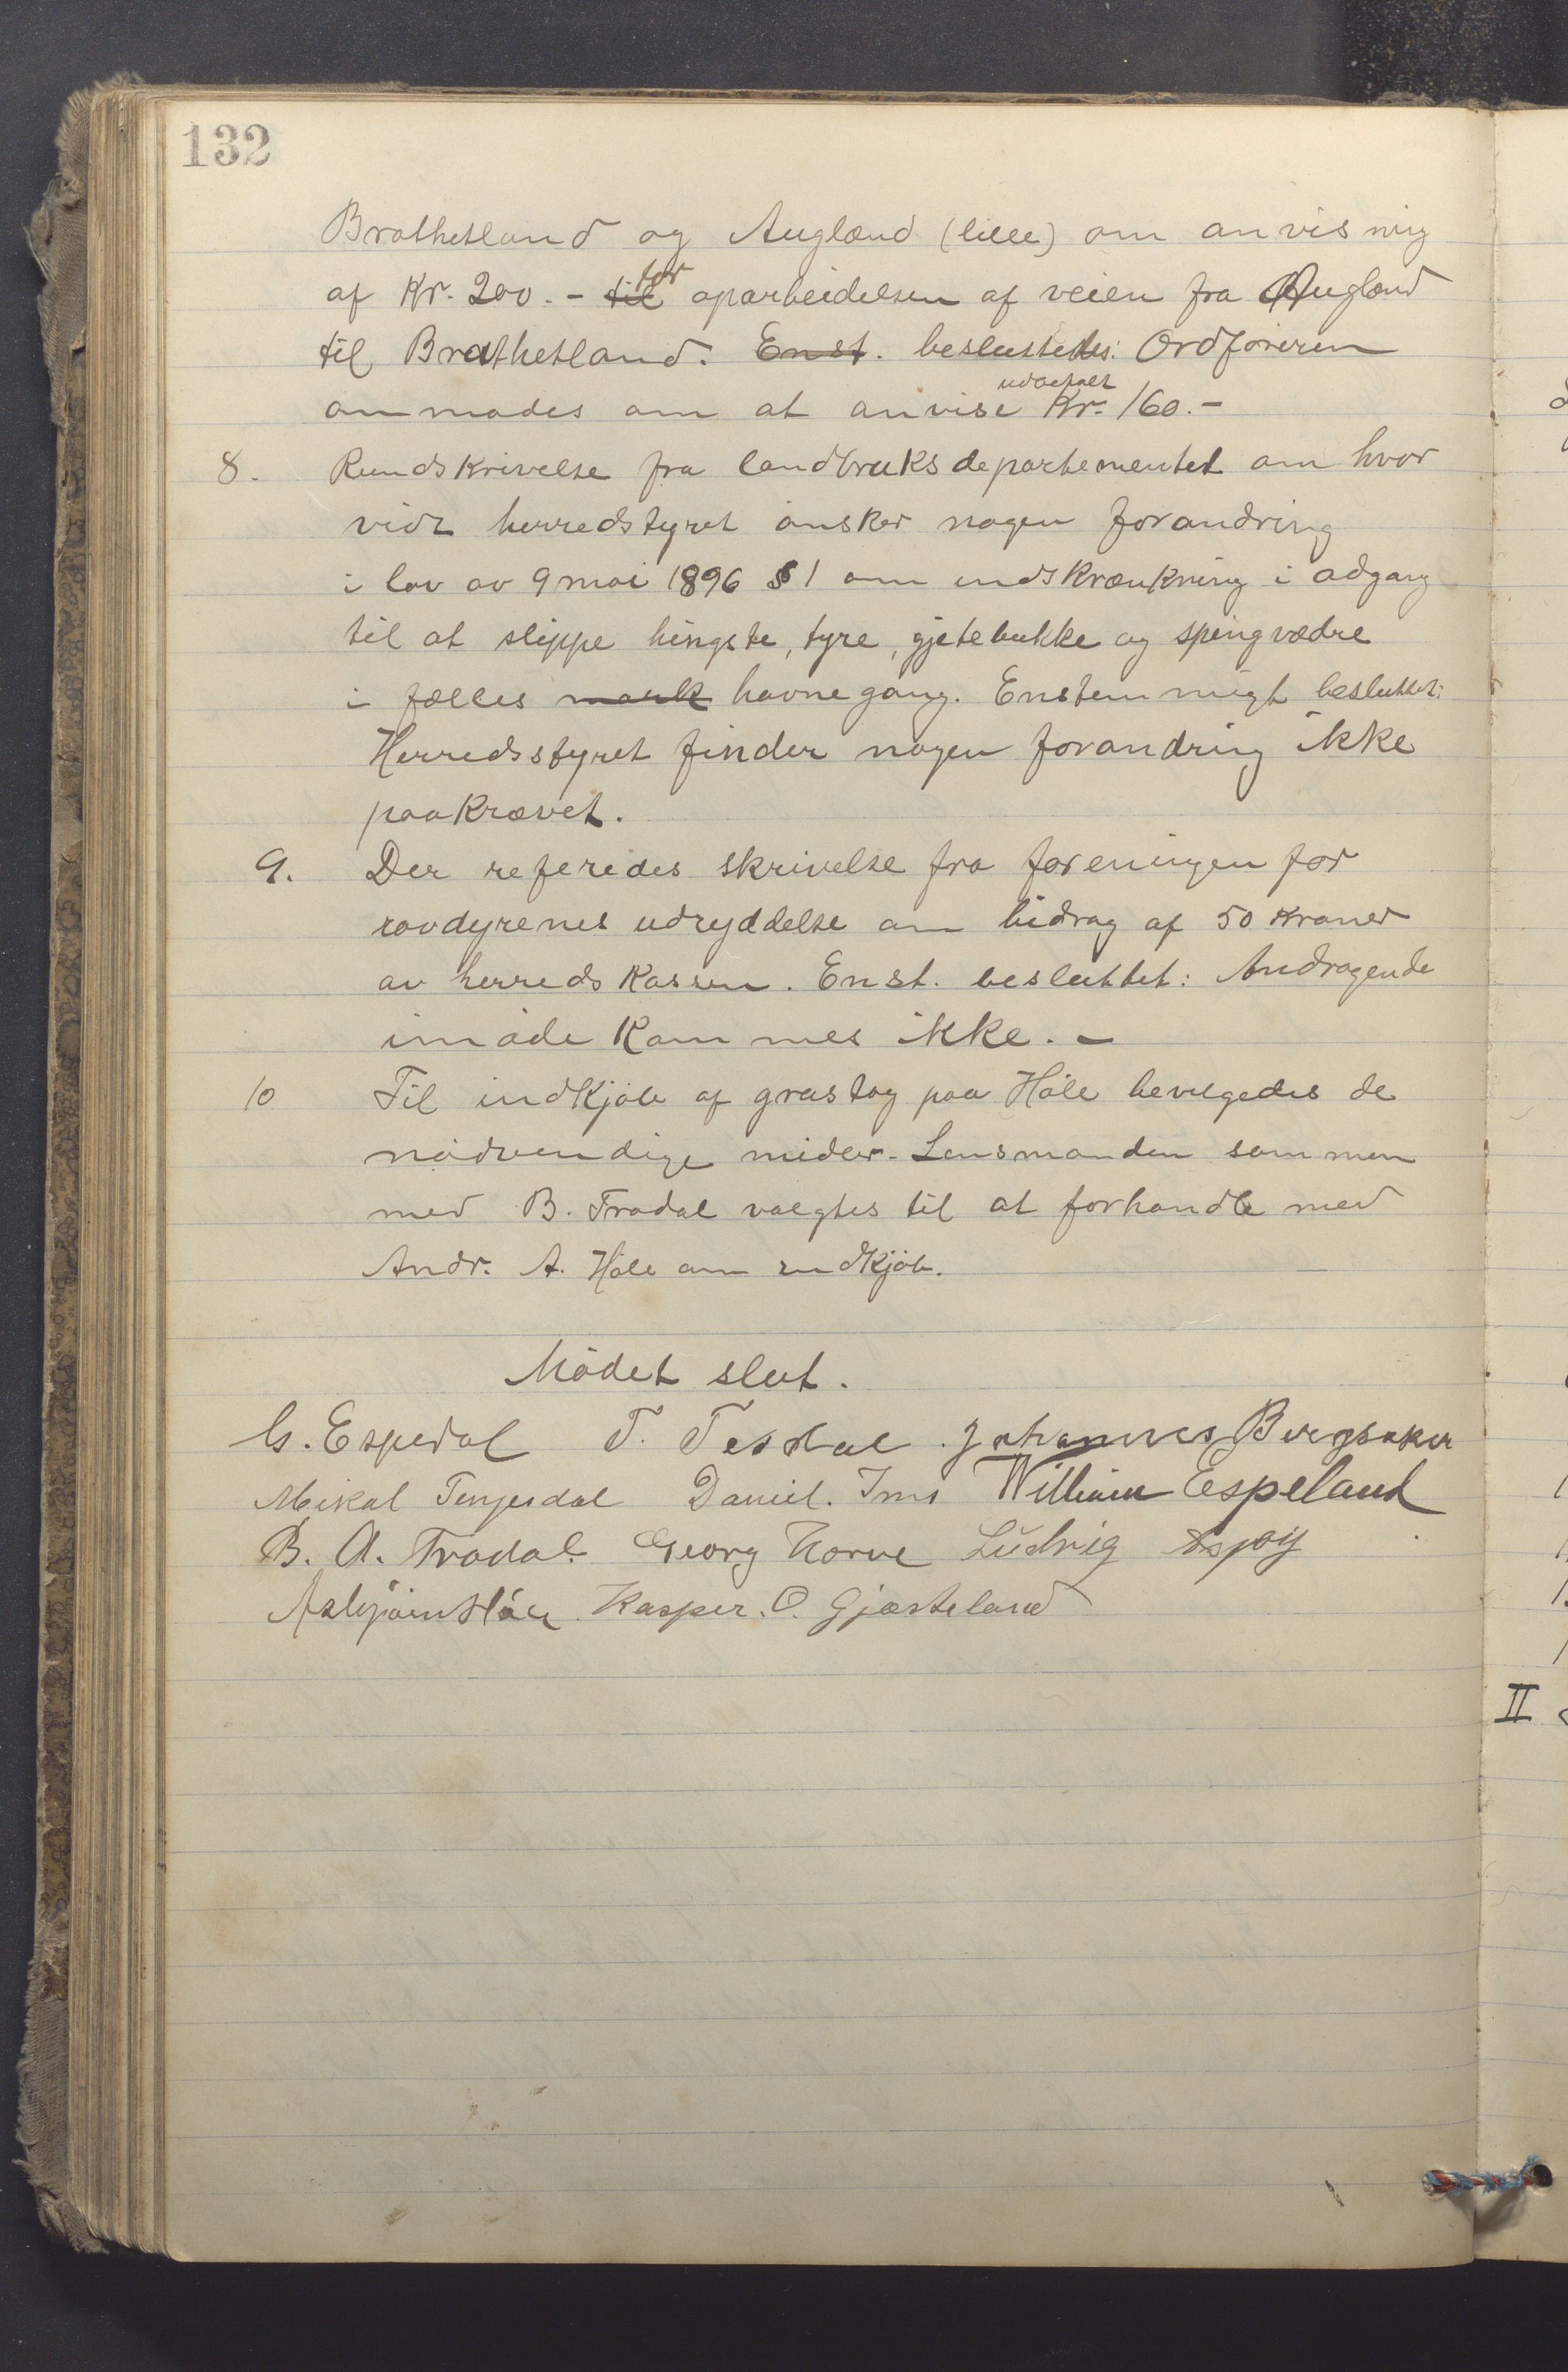 132
Brathetland og Augland (lille) om anvisning
af Kr. 200.- til for oparbeidelsen af veien fra Augland
til Brathetland. Enst. besluttedes: Ordføreren
anmodes om at anvise udbetalt Kr. 160.-
8. Rundskrivelse fra landbruksdepartementet om hvor
vidt herredstyret ønsker nogen forandring
i lov av 9 mai 1896 § 1 om indskrænkning i adgang
til at slippe hingste, tyre, gjetebukke og springvædre
i fælles mark havnegang. Enstemmigt besluttet:
Herredsstyret finder nogen forandring ikke
paakrævet.
9. Der referedes skrivelse fra foreningen for
rovdyrenes udryddelse om bidrag af 50 Kroner
av herredskassen. Enst. besluttet: Andragende
imødekommes ikke. -
10 Til indkjøb af grustag paa Høle bevilgedes de
nødvendige midler. Lensmanden sammen
med B. Fradal valgtes til at forhandle med
Andr. A. Høle om indkjøb.
Mødet slut.
G. Espedal T. Tesdal Johannes Bergsaker
Mikal Tengesdal Daniel. Ims William Espeland
B. A. Fradal. Georg Norve Ludvig Aspøy
Asbjørn Kasper. O. Gjæsteland
II